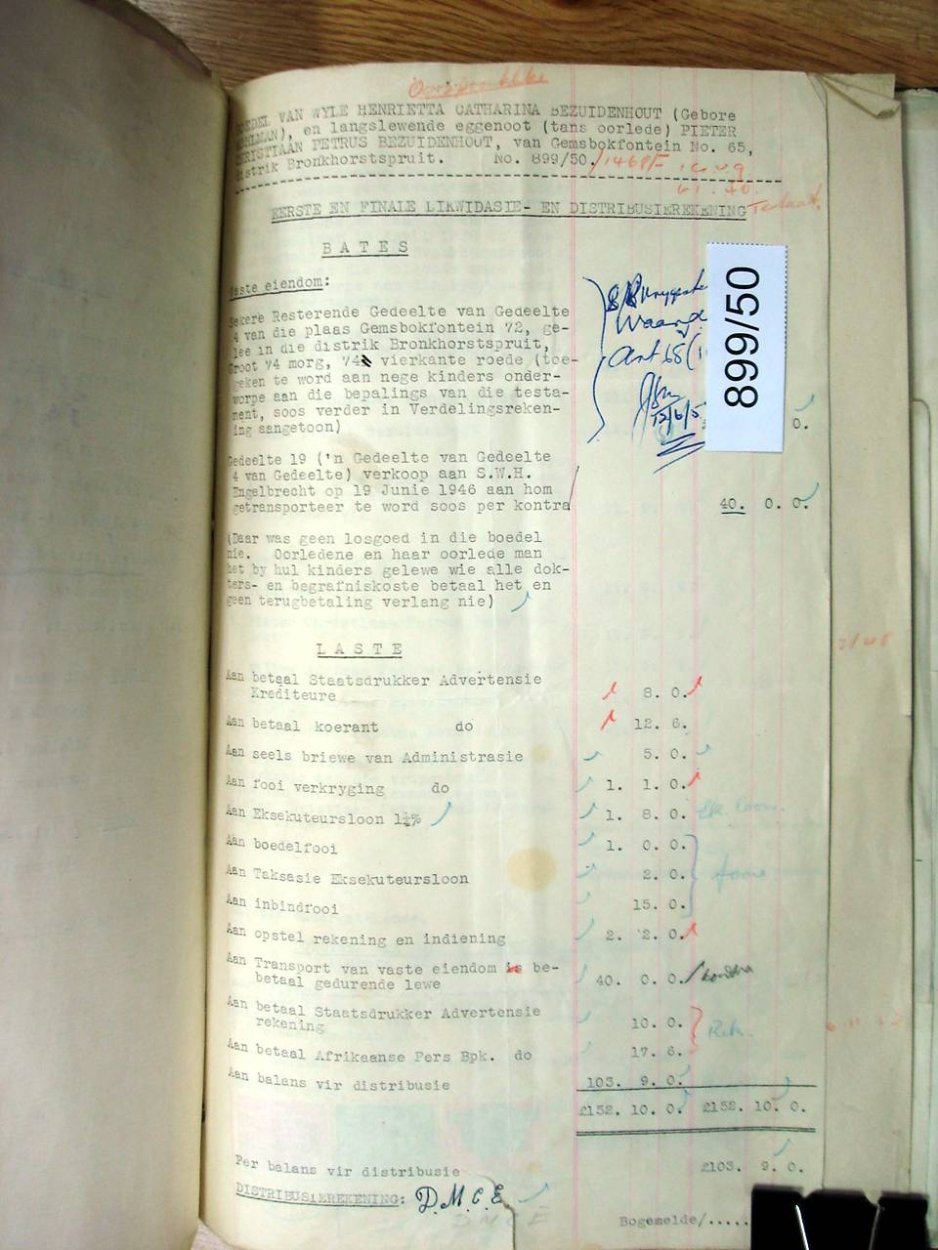 Oorspronklike
BOEDEL VAN WYLE HENRIETTA CATHARINA BEZUIDENHOUT (Gebore
), en langslewende eggenoot (tans oorlede) PIETER
CHRISTIAAN PETRUS BEZUIDENHOUT, van Gemsbokfontein No. 65,
distrik Bronkhorstspruit. No. 899/50.
EERSTE EN FINALE LIKWIDASIE- EN DISTRIBUSIEREKENING
BATES
Vaste eiendom:
Sekere Resterende Gedeelte van Gedeelte
4 van die plaas Gemsbokfontein 72, ge-
lee in die distrik Bronkhorstspruit,
Groot 74 morg, 74 vierkante roede (toe-
geken te word aan nege kinders onder-
worpe aan die bepalings van die testa-
ment, soos verder in Verdelingsreken-
ing aangetoon) 0.
Waarde
Art 68(1
12/6/5
899/50
Gedeelte 19 ('n Gedeelte van Gedeelte
4 van Gedeelte) verkoop aan S.W.H.
Engelbrecht op 19 Junie 1946 aan hom
getransporteer te word soos per kontra 40. 0. 0.
(Daar was geen losgoed in die boedel
nie. Oorledene en haar oorlede man
het by hul kinders gelewe wie alle dok-
ters- en begrafniskoste betaal het en
geen terugbetaling verlang nie)
LASTE
Aan betaal Staatsdrukker Advertensie
Krediteure 8. 0.
Aan betaal koerant do 12. 6.
Aan seels briewe van Administrasie 5. 0.
Aan fooi verkryging do 1. 1. 0.
Aan Eksekuteursloon 1¼% 1. 8. 0.
Aan boedelfooi 1. 0. 0.
Aan Taksasie Eksekuteursloon 2. 0.
Aan inbindfooi 15. 0.
Aan opstel rekening en indiening 2. 2. 0.
Aan Transport van vaste eiendom is be-
betaal gedurende lewe 40. 0. 0. kontra
Aan betaal Staatsdrukker Advertensie
rekening 10. 0.
Aan betaal Afrikaanse Pers Bpk. do 17. 6.
Aan balans vir distribusie 103. 9. 0.
£152. 10. 0. £152. 10. 0.
Per balans vir distribusie £103. 9. 0.
DISTRIBUSIEREKENING: D.M.C.E
Bogemelde/.....